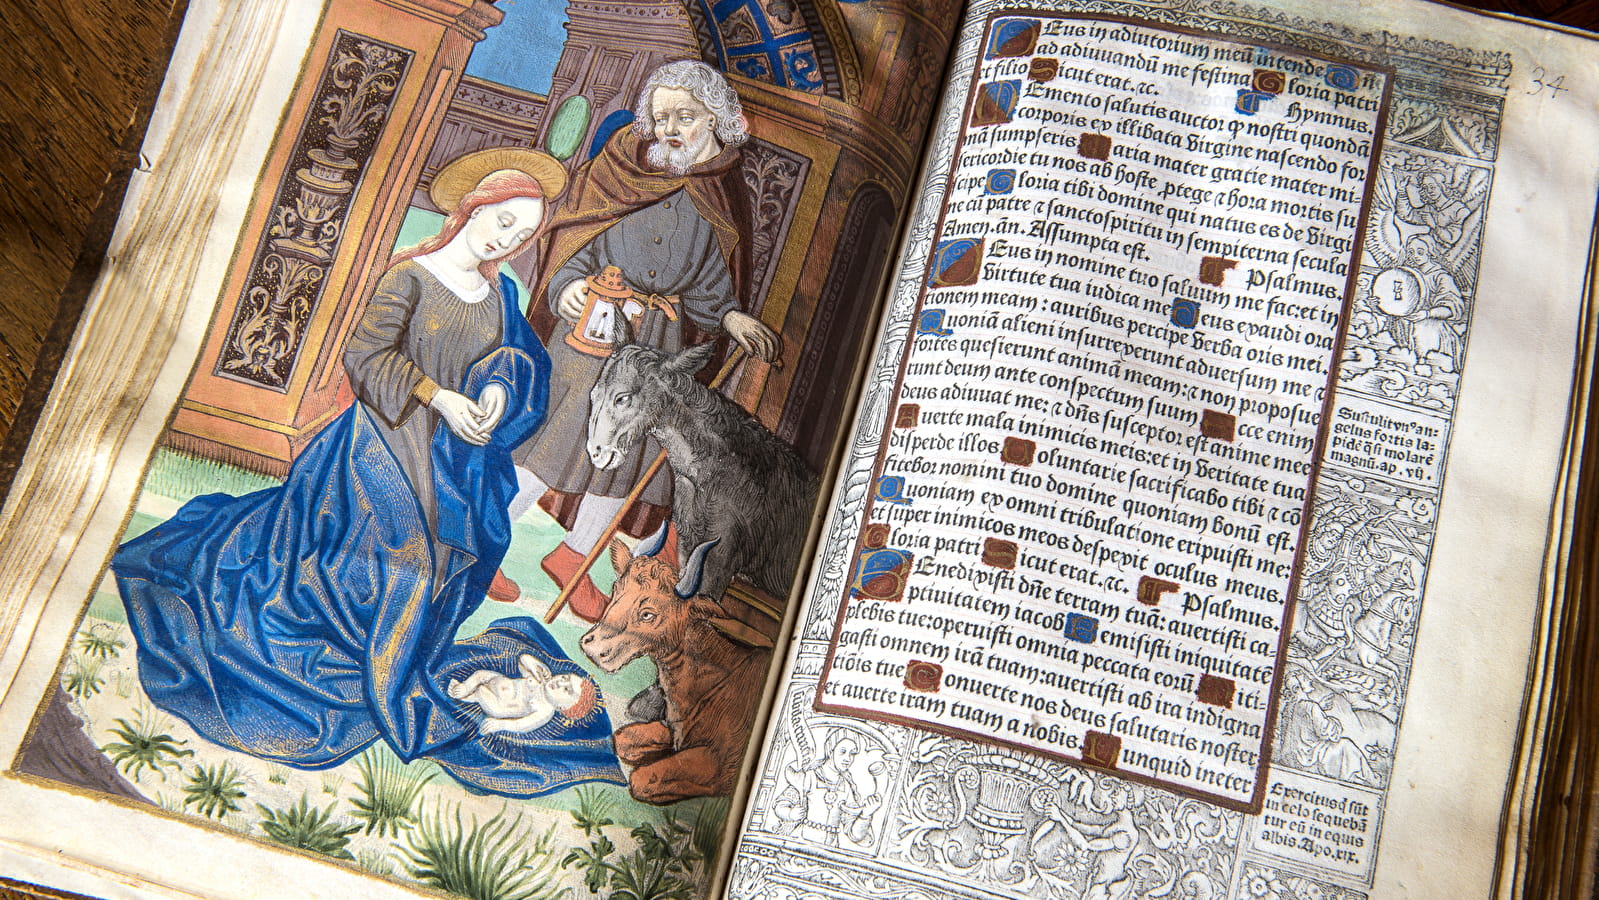 34
Deus in adiutorium meū intende Dn̄
ad adiuvandū me festina Gloria patri
et filio Sicut erat.⁊c. Hymnus.
Memento salutis auctor ꝙ nostri quondā
corporis ex illibata Virgine nascendo for
mā sumpseris Maria mater gratie mater mi-
sericordie tu nos ab hoste ,ptege ⁊ hora mortis su
scipe Gloria tibi domine qui natus es de Virgi
ne cū patre ⁊ sanctospiritu in sempiterna secula
Amen.ān. Assumpta est. Psalmus.
Deus in nomine tuo saluum me fac:et in
Virtute tua iudica me Deus exaudi ora
tionem meam: auribus percipe Verba oris mei.
Quoniā alieni insurrexerunt adversum me ⁊
fortes quesierunt animā meam:⁊ non proposue
runt deum ante conspectum suum Ecce enim
deus adiuvat me: ⁊ dn̄s susceptor est anime mee
Averte mala inimicis meis:et in Veritate tua
disperde illos Voluntarie sacrificabo tibi ⁊ cō
fitebor nomini tuo domine quoniam bonū est.
Quoniam ex omni tribulatione eripuisti me:
et super inimicos meos despexit oculus meus.
Gloria patri Sicut erat.⁊c. Psalmus.
Benedixisti dn̄e terram tuā: avertisti ca-
ptivitatem iacob Remisisti iniquitatē
plebis tue:operuisti omnia peccata eorū Miti-
gasti omnem irā tuam:avertisti ab ira indigna
tiōis tue Converte nos deus salutaris noster
et averte iram tuam a nobis. Nunquid ineter
Sustulit vn⁹ an-
gelus fortis la-
pidē q̄si molarē
magnū.ap. vii.
Exercitusq̄ sūt
in celo sequebā
tur eū in equis
albis.Apo.xix.